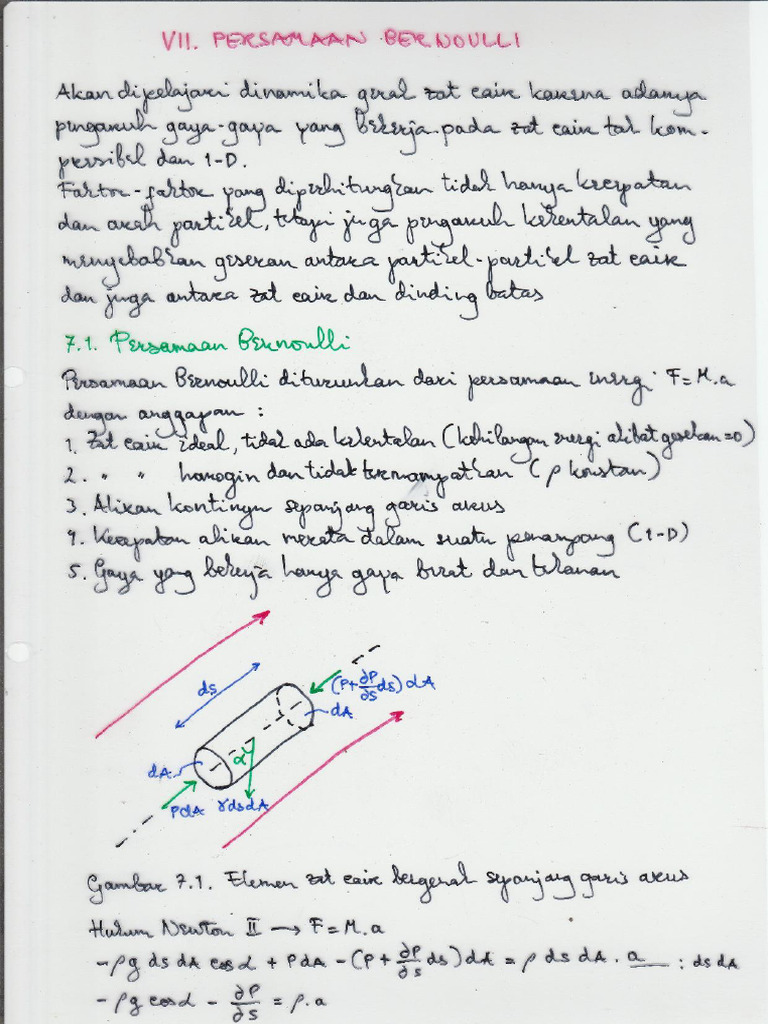 VII. PERSAMAAN BERNOULLI
Akan dipelajari dinamika gerak zat cair karena adanya
pengaruh gaya-gaya yang bekerja pada zat cair tak kom-
persibel dan 1-D.
Faktor-faktor yang diperhitungkan tidak hanya kecepatan
dan arah partikel, tetapi juga pengaruh kekentalan yang
menyebabkan gesekan antara partikel-partikel zat cair
dan juga antara zat cair dan dinding batas
7.1. Persamaan Bernoulli
Persamaan Bernoulli diturunkan dari persamaan energi F=M.a
dengan anggapan :
1. Zat cair ideal, tidak ada kekentalan (kehilangan energi akibat gesekan=0)
2. " " homogin dan tidak termampatkan (ρ konstan)
3. Alikan kontinyu sepanjang garis arus
4. Kecepatan alikan merata dalam suatu penampang (1-D)
5. Gaya yang bekerja hanya gaya berat dan tekanan
ds
(P+∂P/∂s ds) dA
dA
dA
α
PdA γdsdA
Gambar 7.1. Elemen zat cair bergerak sepanjang garis arus
Hukum Newton II → F=M.a
-ρg ds dA cos α + PdA - (P+∂P/∂s ds) dA = ρ ds dA . a : ds dA
-ρg cos α - ∂P/∂s = ρ.a